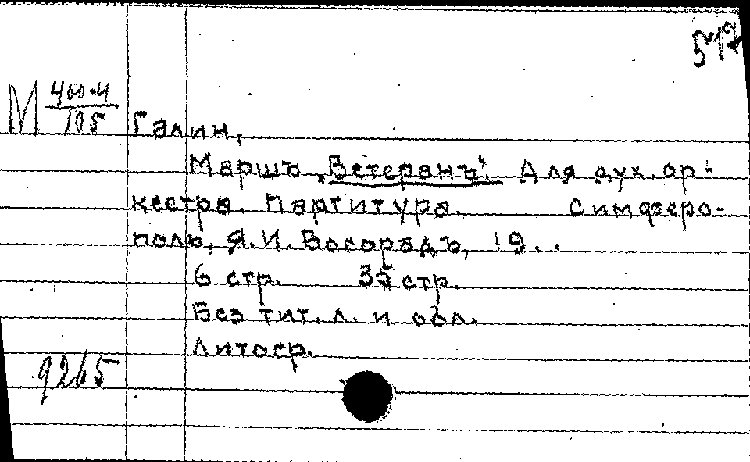 517
М 400-4/105
Галин,
Маршъ „Ветеранъ“. Для дух. ор-
кестра. Партитура. Симферо-
поль, Я. И. Восорадъ, 19..
6 стр. 35 стр.
Без тит. л. и обл.
Литогр.
9265